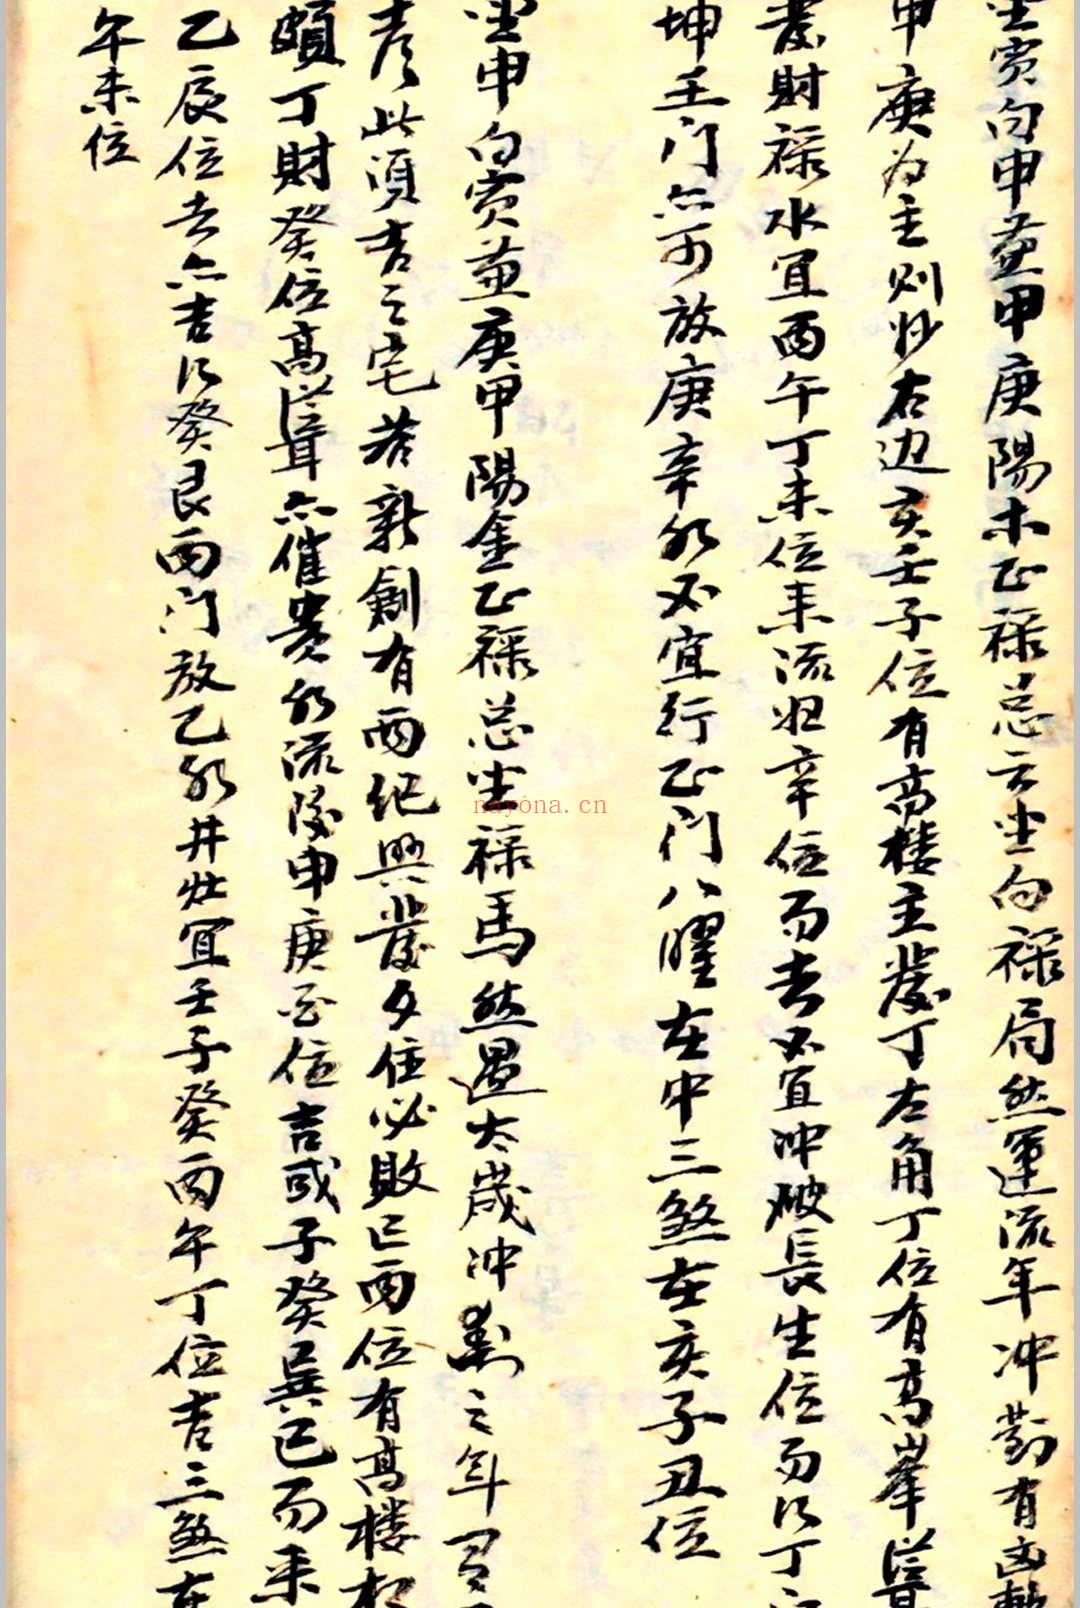 坐寅向申兼甲庚陽木正禄总云坐向禄局然運流年冲對有凶
甲庚为主则妙右边亥壬子位有高楼主發丁左角丁位有高峯
發財禄水宜丙午丁未位来流归辛位而去不宜冲破長生位而以丁
坤壬门亦可放庚辛水不宜行正门八曜在中三煞在亥子丑位
坐申向寅兼庚甲陽金正禄总坐禄馬然遇太歲冲對之年
此須吉之宅若新創有两纪興發久住必敗巳丙位有高楼
頗丁財癸位高聳亦催贵水流後申庚酉位吉或子癸巽巳而来
乙辰位去亦吉以癸艮丙门放乙水井灶宜壬子癸丙午丁位吉三煞在
午未位
nayona.cn